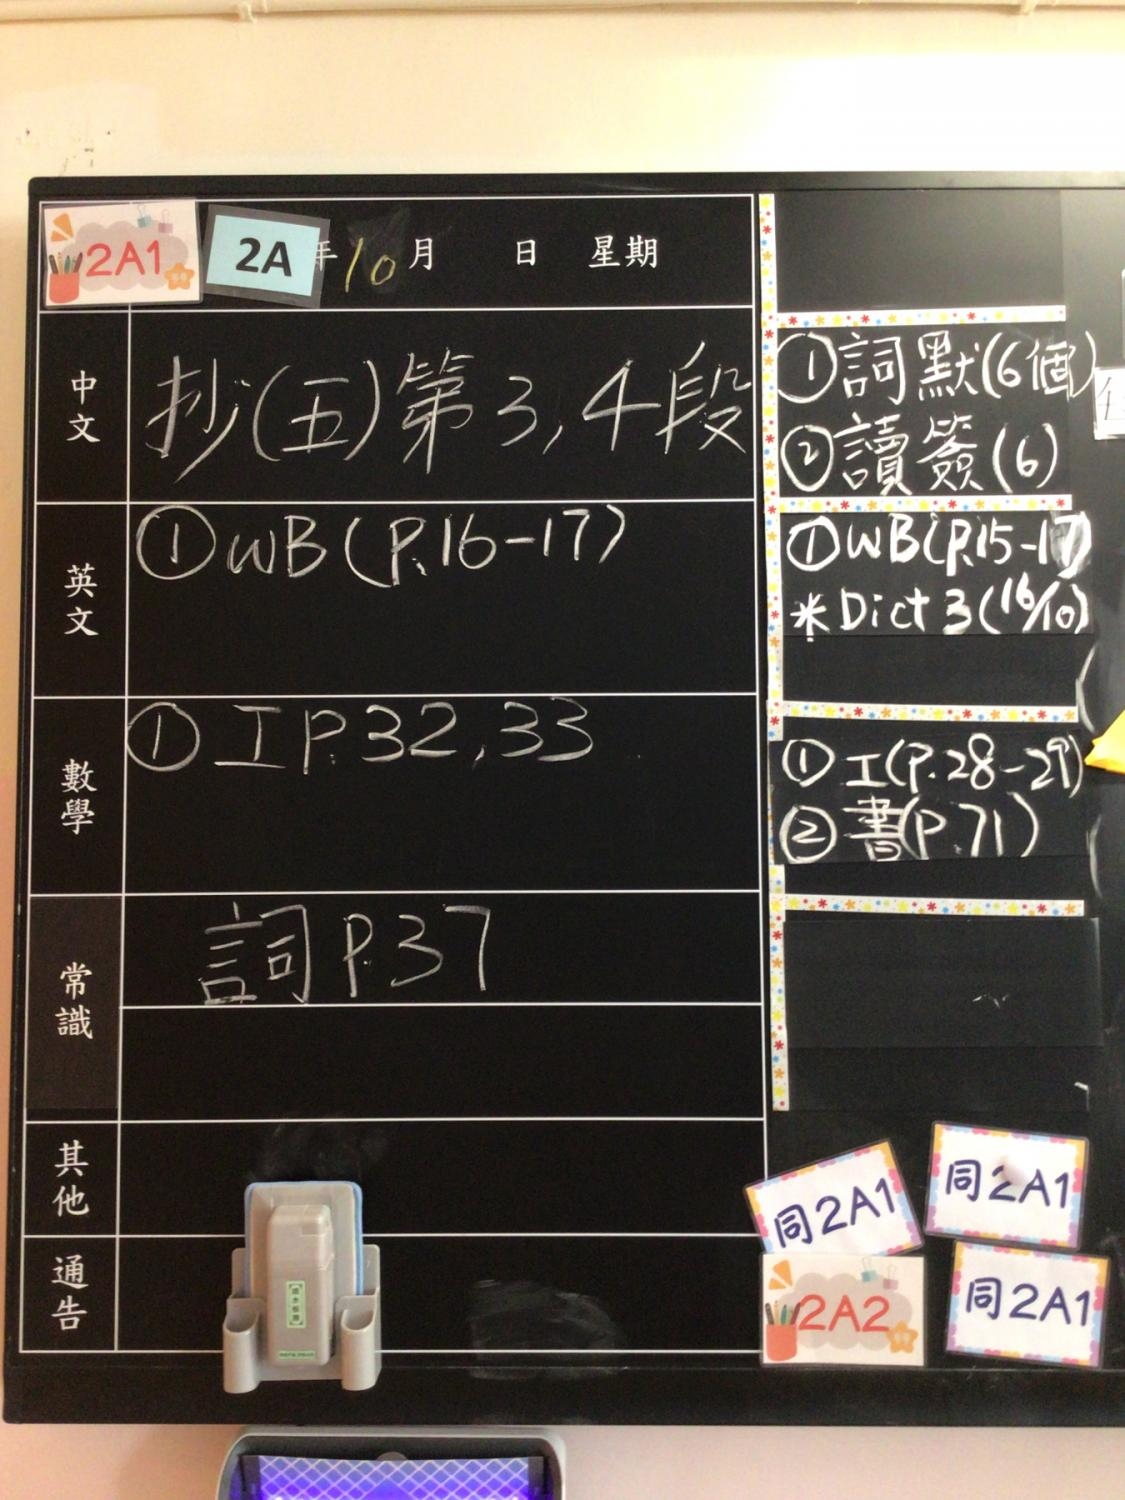 2A1
2A
年 10 月 日 星期
中文
抄(五)第3,4段
①詞默(6個)
②讀簽(6)
英文
①WB(P.16-17)
①WB(P.15-17)
*Dict 3(16/10)
數學
①工P.32,33
①工(P.28-29)
②書(P.71)
常識
詞P.37
其他
通告
同2A1
同2A1
2A2
同2A1